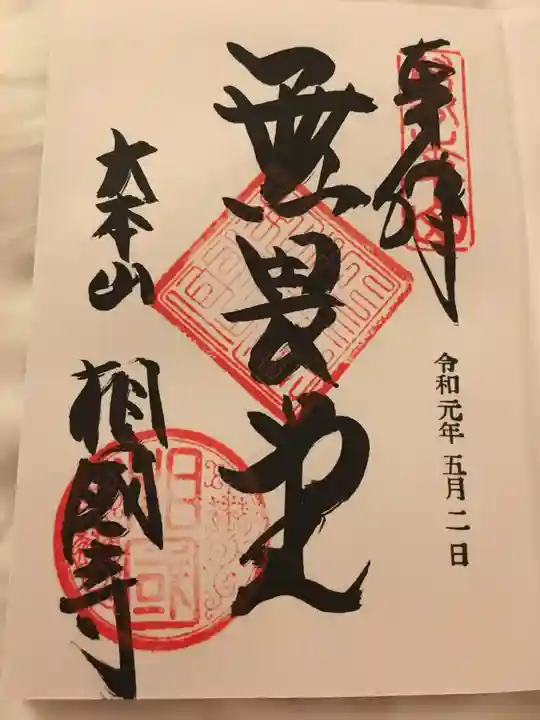 奉拝
令和元年 五月 二 日
無畏堂
大本山 相國寺